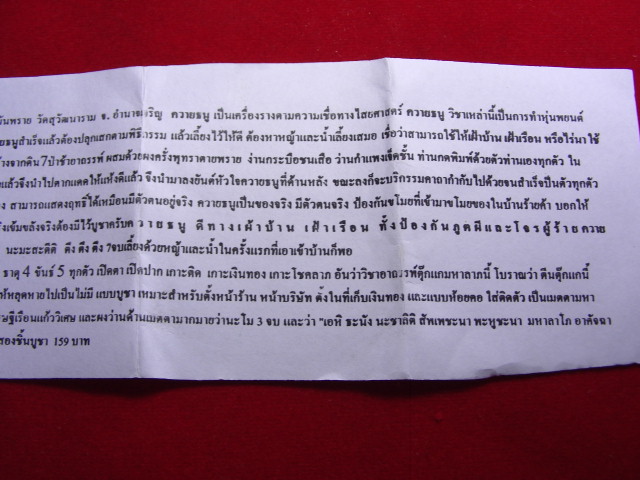 นพราย วัดสุวัฒนาราม จ. อำนาจเจริญ ควายธนู เป็นเครื่องรางตามความเชื่อทางไสยศาสตร์ ควายธนู วิชาเหล่านี้เป็นการทำหุ่นพยนต์
ยธนูสำเร็จแล้วต้องปลุกเสกตามพิธีกรรม แล้วเลี้ยงไว้ให้ดี ต้องหาหญ้าและน้ำเลี้ยงเสมอ เชื่อว่าสามารถใช้ให้เฝ้าบ้าน เฝ้าเรือน หรือไร่นา ใช้
างจากดิน 7 ป่าช้าอาถรรพ์ ผสมด้วยผงครั่งพุทราตายพราย ง่านกระบือชนเสือ ว่านกำแพงเจ็ดชั้น ท่านกดพิมพ์ด้วยตัวท่านเองทุกตัว ใน
แล้วจึงนำไปตากแดดให้แห้งดีแล้ว จึงนำมาลงยันต์หัวใจควายธนูที่ด้านหลัง ขณะลงก็จะบริกรรมคาถากำกับไปด้วยจนสำเร็จเป็นตัวทุกตัว
ง สามารถแสดงฤทธิ์ได้เหมือนมีตัวตนอยู่จริง ควายธนูเป็นของจริง มีตัวตนจริง ป้องกันขโมยที่เข้ามาขโมยของในบ้านร้ายค้า บอกให้
งเข้มขลังจริงต้องมีไว้บูชาครับควายธนู ดีทางเฝ้าบ้าน เฝ้าเรือน ทั้งป้องกันภูตผีและโจรผู้ร้ายควาย
นะมะสะตีติ ตึง ตึง ตึง 7จบเลี้ยงด้วยหญ้าและน้ำในครั้งแรกที่เอาเข้าบ้านก็พอ
ธาตุ 4 ขันธ์ 5 ทุกตัว เปิดตา เปิดปาก เกาะติด เกาะเงินทอง เกาะโชคลาภ อันว่าวิชาอาถรรพ์ตุ๊กแกมหาลาภนี้ โบราณว่า ตีนตุ๊กแกนี้
ให้หลุดหายไปเป็นไม่มี แบบบูชา เหมาะสำหรับตั้งหน้าร้าน หน้าบริษัท ตั้งในที่เก็บเงินทอง และแบบห้อยคอ ใส่ติดตัว เป็นเมตตามหา
ษฐีเรือนแก้ววิเศษ และผงว่านด้านเมตตามากมายว่านะโม 3 จบ และว่า "เอหิ ธะนัง นะชาลิติ สัพเพชะนา พะหูชะนา มหาลาโภ อาคัจฉา
รองชิ้นบูชา 159 บาท